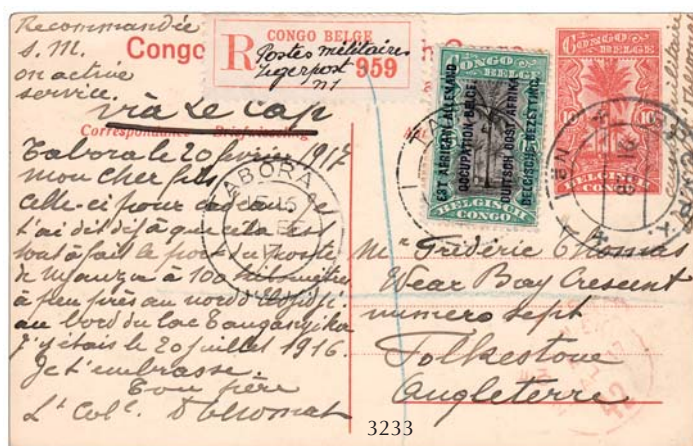 Recommandée
S.M.
on active
service.
via Le Cap
Congo
CONGO BELGE
R
Postes militaires
Legerpost
N1
959
Correspondance
Tabora le 20 février 1917
mon cher fils
Celle-ci pour
t'ai dit déjà que cela est
tout à fait le port du poste
de à 100 kilomètres
à peu près au nord d'Udjidji
au bord du lac Tanganyika
J'y étais le 20 juillet 1916.
Je t'embrasse
Ton père
Lt Colc. Thomas
TABORA
CONGO BELGE
EST AFRICAIN ALLEMAND
OCCUPATION BELGE
DUITSCH OOST AFRIKA
BELGISCHE BEZETTING
BELGISCH CONGO
CONGO BELGE
10 10
BELGISCH
CONGO
Mr Frédéric Thomas
Wear Bay Crescent
numero sept
Folkestone
Angleterre
3233